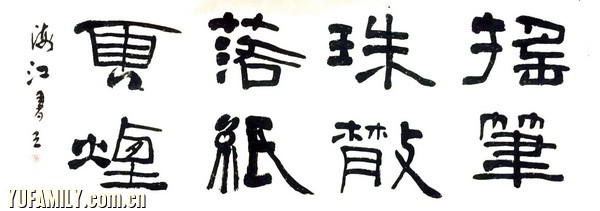 搖筆
珠散
落紙
煙
海江書
YUFAMILY.com.cn